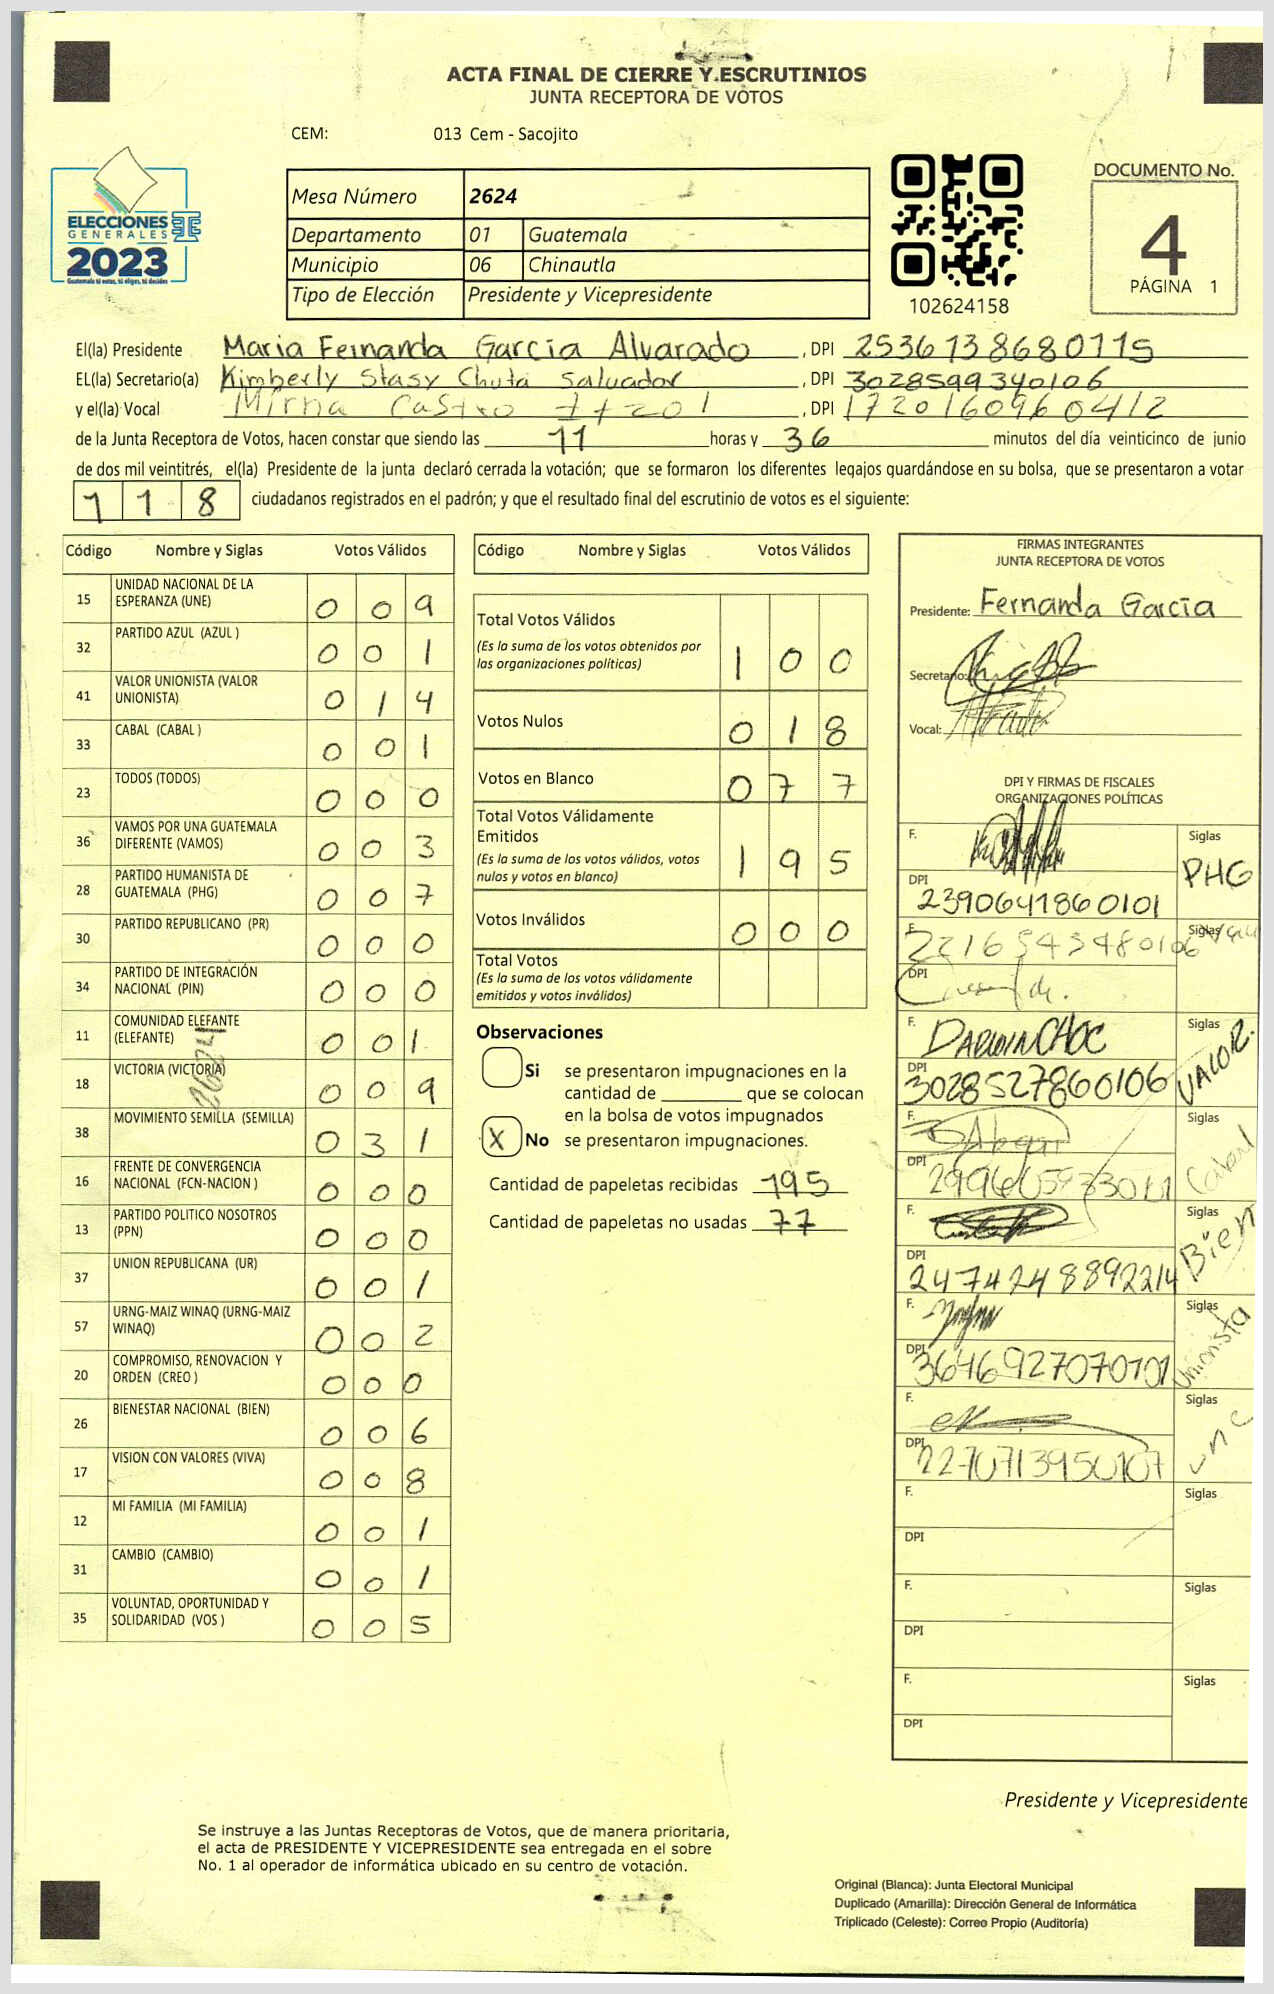 ACTA FINAL DE CIERRE Y ESCRUTINIOS
JUNTA RECEPTORA DE VOTOS
CEM: 013 Cem - Sacojito
ELECCIONES
GENERALES
2023
Guatemala tú votas, tú eliges, tú decides
Mesa Número 2624
Departamento 01 Guatemala
Municipio 06 Chinautla
Tipo de Elección Presidente y Vicepresidente
102624158
DOCUMENTO No.
4
PÁGINA 1
El(la) Presidente Maria Fernanda Garcia Alvarado , DPI 2536138680115
EL(la) Secretario(a) Kimberly Stasy Chuta Salvador , DPI 3028599340106
y el(la) Vocal Mirna Castro , DPI 1720160960412
de la Junta Receptora de Votos, hacen constar que siendo las 11 horas y 36 minutos del día veinticinco de junio
de dos mil veintitrés, el(la) Presidente de la junta declaró cerrada la votación; que se formaron los diferentes legajos guardándose en su bolsa, que se presentaron a votar
1 1 8 ciudadanos registrados en el padrón; y que el resultado final del escrutinio de votos es el siguiente:
Código Nombre y Siglas Votos Válidos
15 UNIDAD NACIONAL DE LA ESPERANZA (UNE) 0 0 9
32 PARTIDO AZUL (AZUL ) 0 0 1
41 VALOR UNIONISTA (VALOR UNIONISTA) 0 1 4
33 CABAL (CABAL ) 0 0 1
23 TODOS (TODOS) 0 0 0
36 VAMOS POR UNA GUATEMALA DIFERENTE (VAMOS) 0 0 3
28 PARTIDO HUMANISTA DE GUATEMALA (PHG) 0 0 7
30 PARTIDO REPUBLICANO (PR) 0 0 0
34 PARTIDO DE INTEGRACIÓN NACIONAL (PIN) 0 0 0
11 COMUNIDAD ELEFANTE (ELEFANTE) 0 0 1
18 VICTORIA (VICTORIA) 0 0 9
2624
38 MOVIMIENTO SEMILLA (SEMILLA) 0 3 1
16 FRENTE DE CONVERGENCIA NACIONAL (FCN-NACION ) 0 0 0
13 PARTIDO POLITICO NOSOTROS (PPN) 0 0 0
37 UNION REPUBLICANA (UR) 0 0 1
57 URNG-MAIZ WINAQ (URNG-MAIZ WINAQ) 0 0 2
20 COMPROMISO, RENOVACION Y ORDEN (CREO ) 0 0 0
26 BIENESTAR NACIONAL (BIEN) 0 0 6
17 VISION CON VALORES (VIVA) 0 0 8
12 MI FAMILIA (MI FAMILIA) 0 0 1
31 CAMBIO (CAMBIO) 0 0 1
35 VOLUNTAD, OPORTUNIDAD Y SOLIDARIDAD (VOS ) 0 0 5
Código Nombre y Siglas Votos Válidos
Total Votos Válidos
(Es la suma de los votos obtenidos por las organizaciones políticas) 1 0 0
Votos Nulos 0 1 8
Votos en Blanco 0 7 7
Total Votos Válidamente Emitidos
(Es la suma de los votos válidos, votos nulos y votos en blanco) 1 9 5
Votos Inválidos 0 0 0
Total Votos
(Es la suma de los votos válidamente emitidos y votos inválidos)
Observaciones
Si se presentaron impugnaciones en la
cantidad de ________ que se colocan
en la bolsa de votos impugnados
X No se presentaron impugnaciones.
Cantidad de papeletas recibidas 195
Cantidad de papeletas no usadas 77
FIRMAS INTEGRANTES
JUNTA RECEPTORA DE VOTOS
Presidente: Fernanda Garcia
Secretario:
Vocal:
DPI Y FIRMAS DE FISCALES
ORGANIZACIONES POLÍTICAS
F. Siglas PHG
DPI 2390641860101
F. Siglas
DPI
F. DARWIN CHOC Siglas VALOR.
DPI 3028527860106
F. Siglas Cabal
DPI
F. Siglas Bien
DPI 2474248892214
F. Siglas Unionista
DPI 3646927070101
F. Siglas une
DPI 2270713950107
F. Siglas
DPI
F. Siglas
DPI
F. Siglas
DPI
Presidente y Vicepresidente
Se instruye a las Juntas Receptoras de Votos, que de manera prioritaria,
el acta de PRESIDENTE Y VICEPRESIDENTE sea entregada en el sobre
No. 1 al operador de informática ubicado en su centro de votación.
Original (Blanca): Junta Electoral Municipal
Duplicado (Amarilla): Dirección General de Informática
Triplicado (Celeste): Correo Propio (Auditoría)